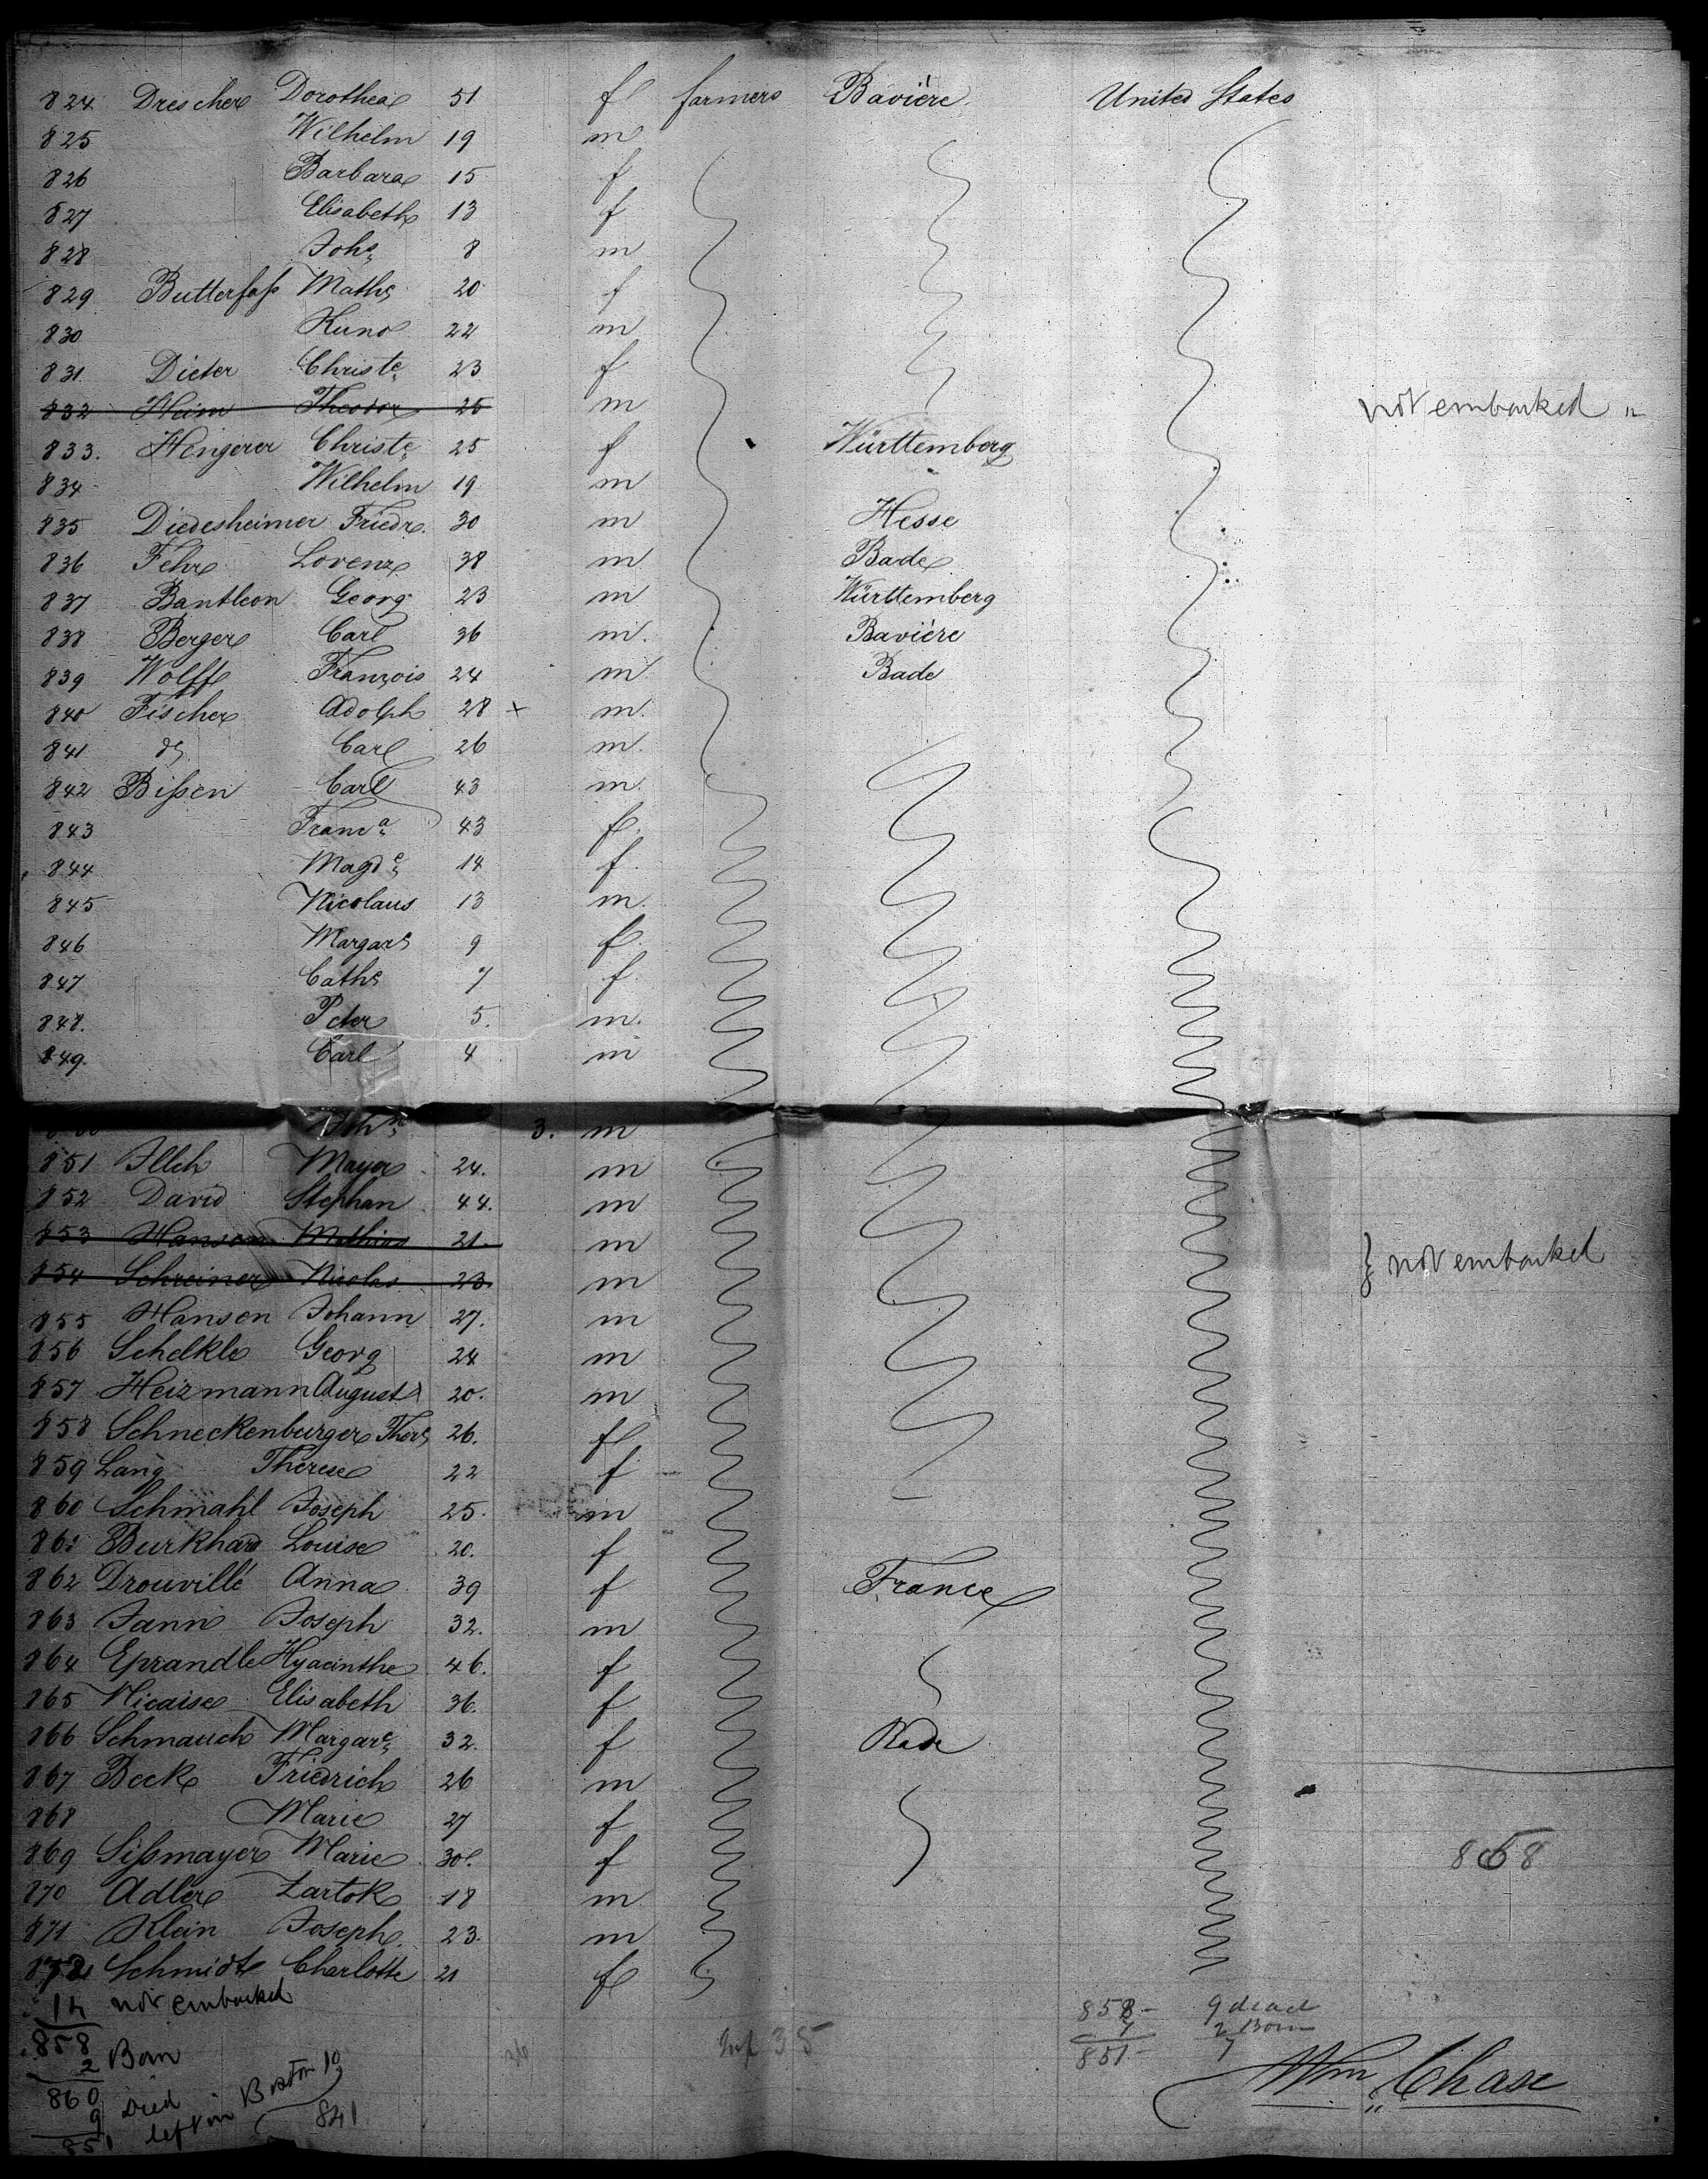 824 Drescher Dorothea 51 f farmers Bavière United States
825 Wilhelm 19 m
826 Barbara 15 f
827 Elisabeth 13 f
828 Johs 8 m
829 Butterfaß Mathe 20 f
830 Kuno 22 m
831 Dieter Christe 23 f
832 Heim Theodor 25 m not embarked "
833. Hengerer Christe 25 f Württemberg
834 Wilhelm 19 m
835 Diedesheimer Friedr. 30 m Hesse
836 Fehr Lorenz 38 m Bade
837 Bantleon Georg 23 m Württemberg
838 Berger Carl 36 m. Bavière
839 Wolff François 24 m Bade
840 Fischer Adolph 28 + m.
841 do Carl 26 m.
842 Bißen Carl 43 m.
843 Franca 43 f.
844 Magde 14 f.
845 Nicolaus 13 m.
846 Margare 9 f.
847 Cathe 7 f.
848. Peter 5. m.
849. Carl 4 m
John 3. m
851 Illch Mayer 24. m
852 David Stephan 44. m
853 Hanson Mathias 21. m } not embarked
854 Schreiner Nicolas 23. m
855 Hansen Johann 27. m
856 Schelkle Georg 24 m
857 Heizmann August 20. m
858 Schneckenburger Therse 26. f
859 Lang Therese 22 f
860 Schmahl Joseph 25. m
861 Burkhard Louise 20. f
862 Drouvillé Anna 39 f France
863 Jann Joseph 32. m
864 Eprandle Hyacinthe 46. f
865 Nicaise Elisabeth 36. f
866 Schmauch Margare 32. f Bade
867 Beck Friedrich 26 m
868 Marie 27 f
869 Sißmayer Marie 30. f 868
870 Adler Zartok 18 m
871 Klein Joseph 23. m
872 Schmidt Charlotte 21 f
14 not embarked
858 858- 9 dead
2 Born 7 2 Born
860 851- 7
9 Died
851 left in Boston 10
841
35
Wm Chase